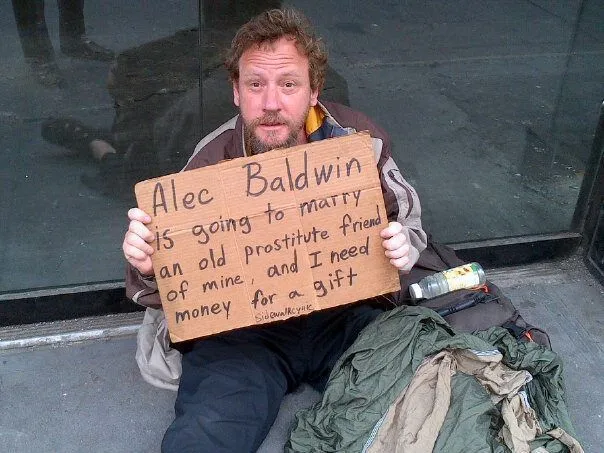 Alec Baldwin
is going to marry
an old prostitute friend
of mine, and I need
money for a gift
SidewalkCynic